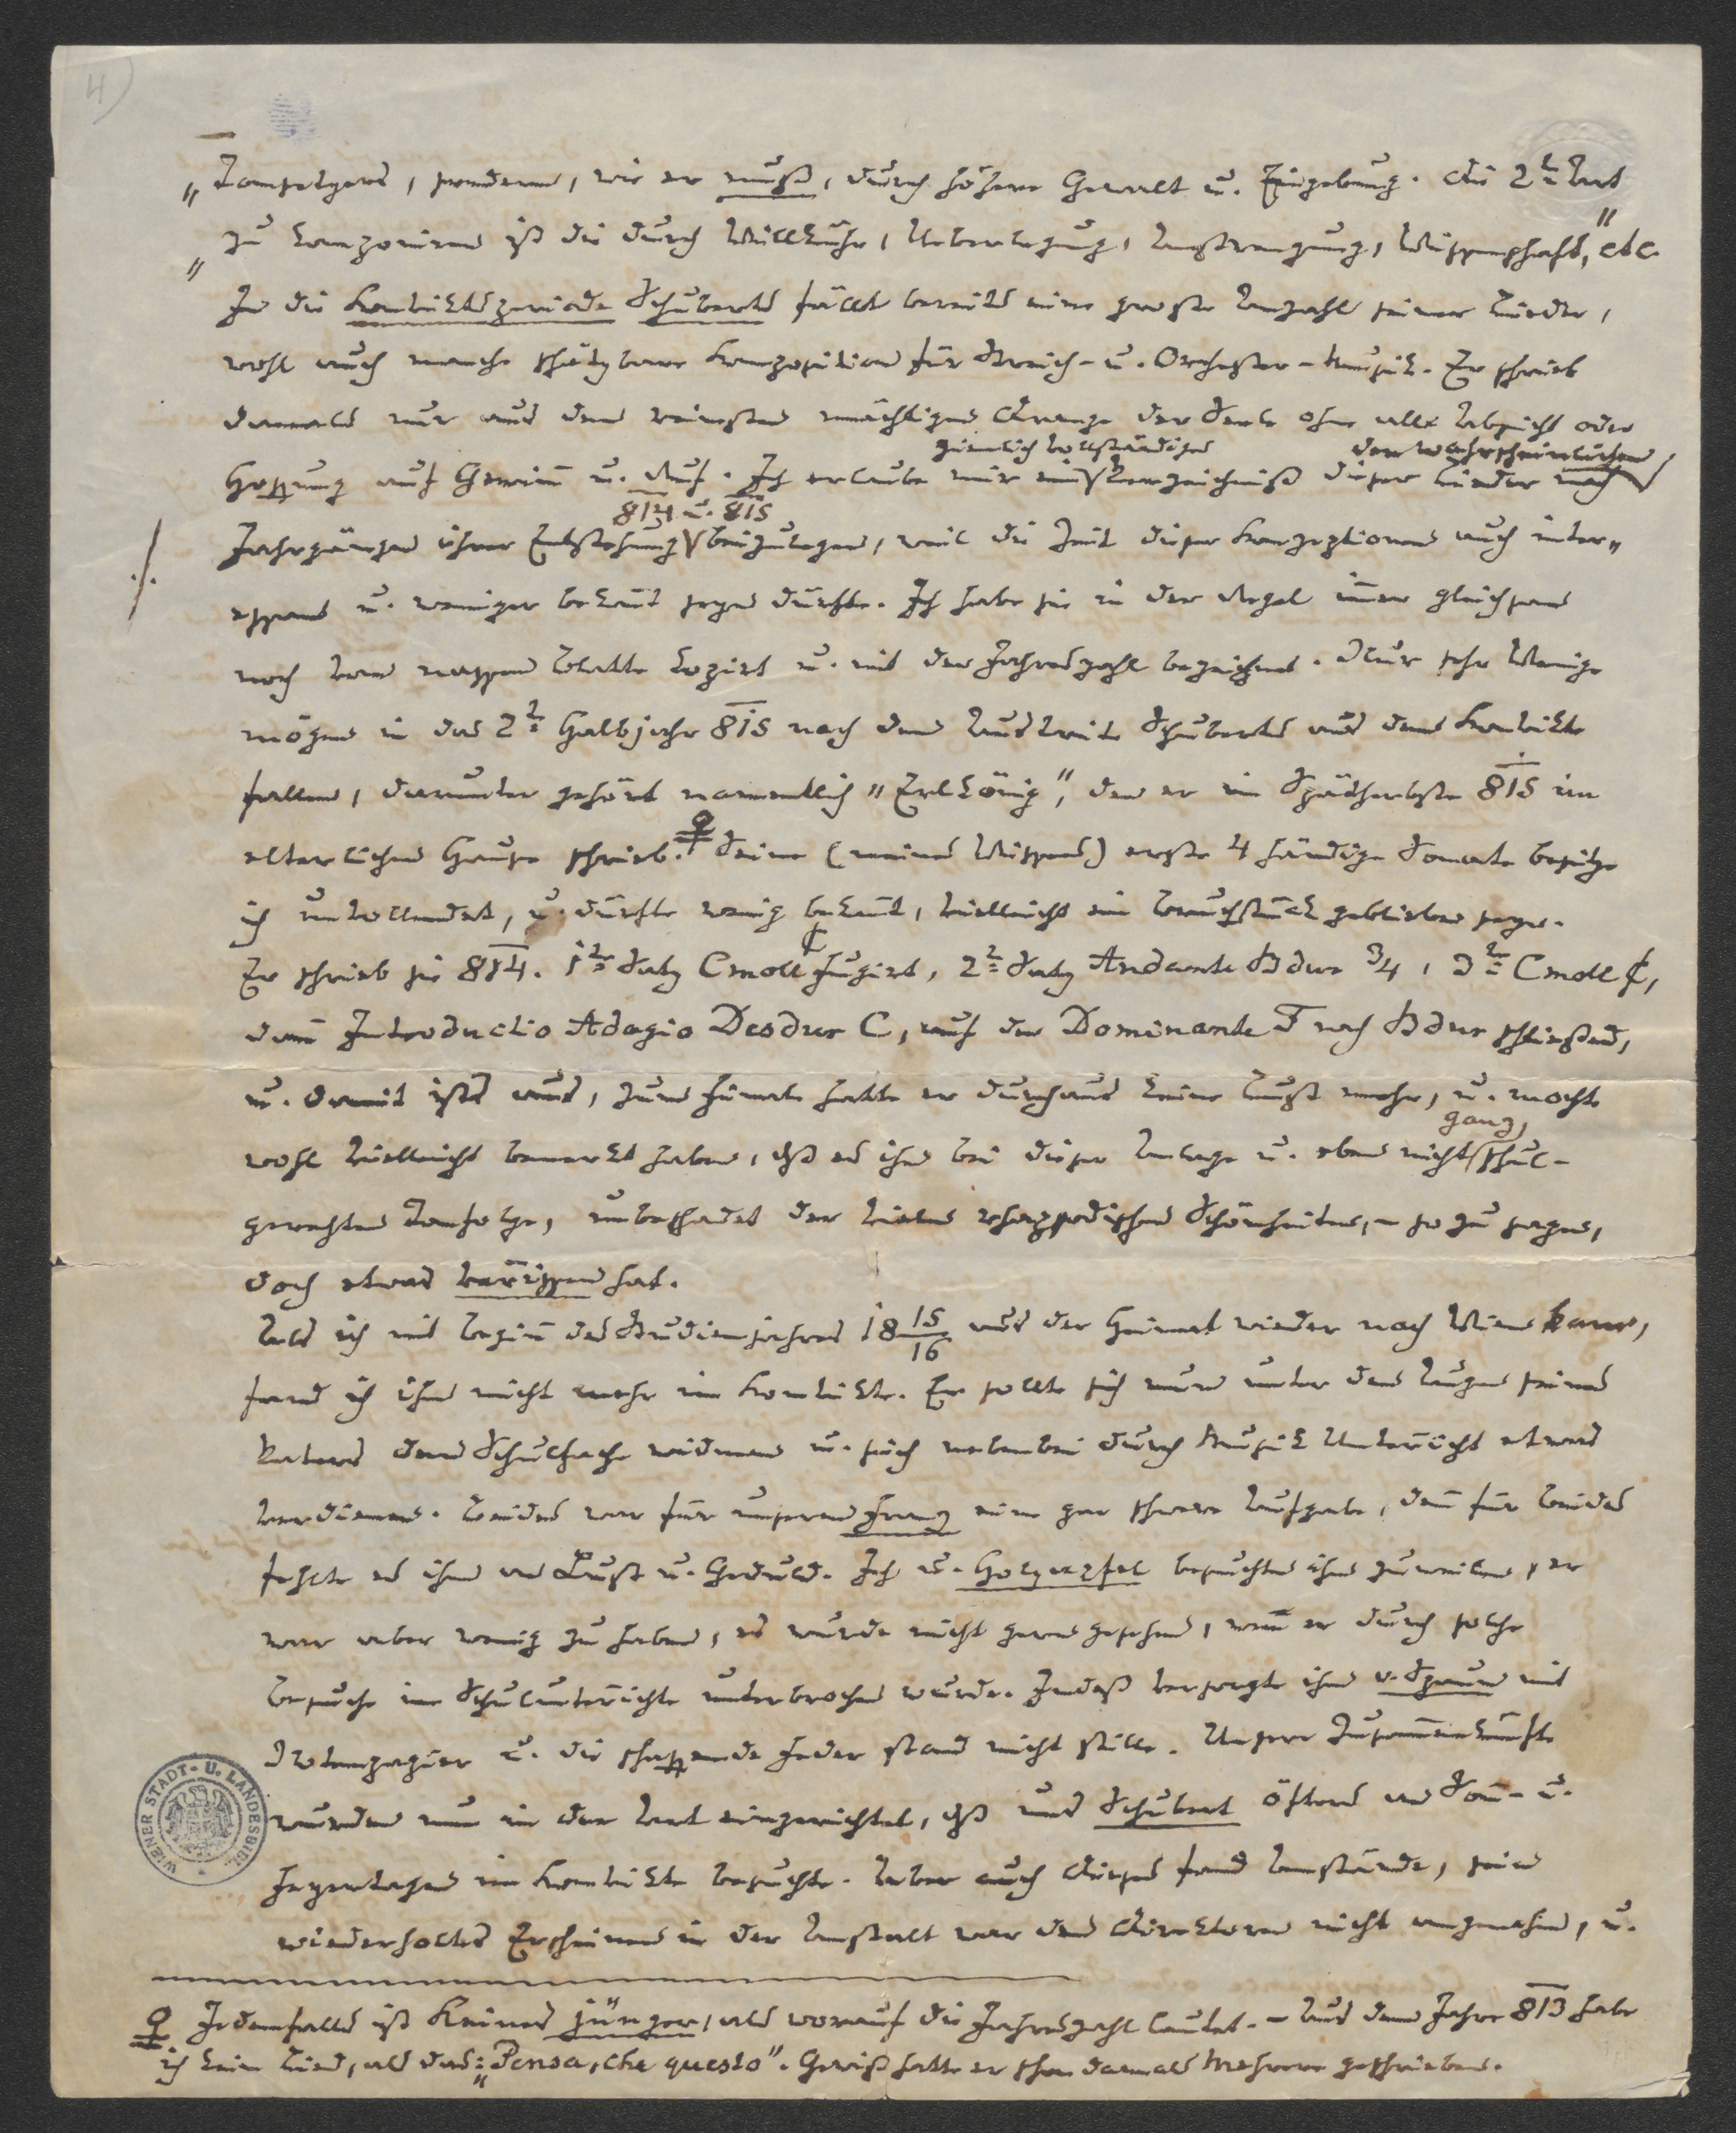 4)
„Tonsetzers, sondern, wie er muß, durch höhere Gewalt u. Eingebung. Die 2te Art
„zu komponiren ist die durch Willkühr, Ueberlegung, Anstrengung, Wissenschaft," etc.
In die Konviktsperiode Schuberts fällt bereits eine große Anzahl seiner Lieder,
wohl auch manche schätzbare Komposition für Streich- u. Orchester-Musik. Er schrieb
damals nur aus dem reinsten mächtigen Drange der Seele ohne alle Absicht oder
ziemlich vollständiges den wahrscheinlichen
Hoffnung auf Gewinn u. Ruf. Ich erlaube mir ein Verzeichniß dieser Lieder nach
814 u. 815
Jahrgängen ihrer Entstehung beizulegen, weil die Zeit dieser Konzeptionen auch inter„
./.
essant u. weniger bekannt seyn dürfte. Ich habe sie in der Regel immer gleichsam
noch vom nassen Blatte kopirt u. mit der Jahreszahl bezeichnet. Nur sehr Wenige
mögen in das 2te Halbjahr 815 nach dem Austritte Schuberts aus dem Konvikte
fallen, darunter gehört namentlich „Erlkönig", den er im Spätherbste 815 im
elterlichen Hause schrieb. Seine (meines Wissens) erste 4 händige Sonate besitze
ich unvollendet, u. dürfte wenig bekannt, vielleicht ein Bruchstück geblieben seyn.
Er schrieb sie 814. 1ter Satz Cmoll ¢ Fugirt, 2ter Satz Andante Bdur 3/4, 3ter Cmoll ¢,
dann Introductio Adagio Desdur C, auf der Dominante F nach Bdur schließend,
u. damit ists aus, zum Finale hatte er durchaus keine Lust mehr, u. mochte
ganz
wohl vielleicht bemerkt haben, daß es ihm bei dieser Anlage u. eben nicht schul-
gerechten Tonfolge, unbeschadet der vielen rhapsodischen Schönheiten, – so zu sagen,
doch etwas verrissen hat.
Als ich mit Beginn des Studienjahres 18 15/16 aus der Heimat wieder nach Wien kam,
fand ich ihn nicht mehr im Konvikte. Er sollte sich nun unter den Augen seines
Vaters dem Schulfache widmen u. sich nebenbei durch Musik Unterricht etwas
verdienen. Beides war für unseren Franz eine gar schwere Aufgabe, denn für Beides
fehlte es ihm an Lust u. Geduld. Ich u. Holzapfel besuchten ihn zuweilen, er
war aber wenig zu haben, es wurde nicht gerne gesehen, wenn er durch solche
Besuche im Schulunterrichte unterbrochen wurde. Indeß versorgte ihn v. Spaun mit
Notenpapier u. die schaffende Feder stand nicht stille. Unsere Zusammenkünfte
wurden nun in der Art eingerichtet, daß uns Schubert öfters an Sonn- u.
Feyertagen im Konvikte besuchte. Aber auch Dieses fand Anstände, sein
wiederholtes Erscheinen in der Anstalt war dem Direktorn nicht angenehm, u.
Jedenfalls ist Keines jünger, als worauf die Jahreszahl lautet. – Aus dem Jahre 813 habe
ich kein Lied, als das: „Pensa, che questo". Gewiß hatte er schon damals Mehrere geschrieben.
WIENER STADT- U. LANDESBIBL.